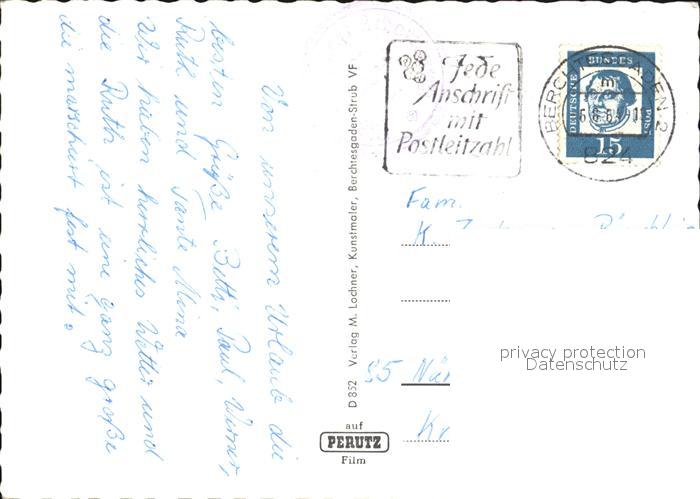 Von unserem Urlaub die
besten Grüße Betti, Paul, Werner,
Ruth und Tante Mina
Wir haben herrliches Wetter und
die Ruth ist eine ganz große
die marschiert fest mit.
D 852 Verlag M. Lochner, Kunstmaler, Berchtesgaden-Strub VF
Jede
Anschrift
mit
Postleitzahl
BERCHTESGADEN 2
824
DEUTSCHE BUNDESPOST
15
Fam.
K.
85 Nür
Kr
privacy protection
Datenschutz
auf
PERUTZ
Film